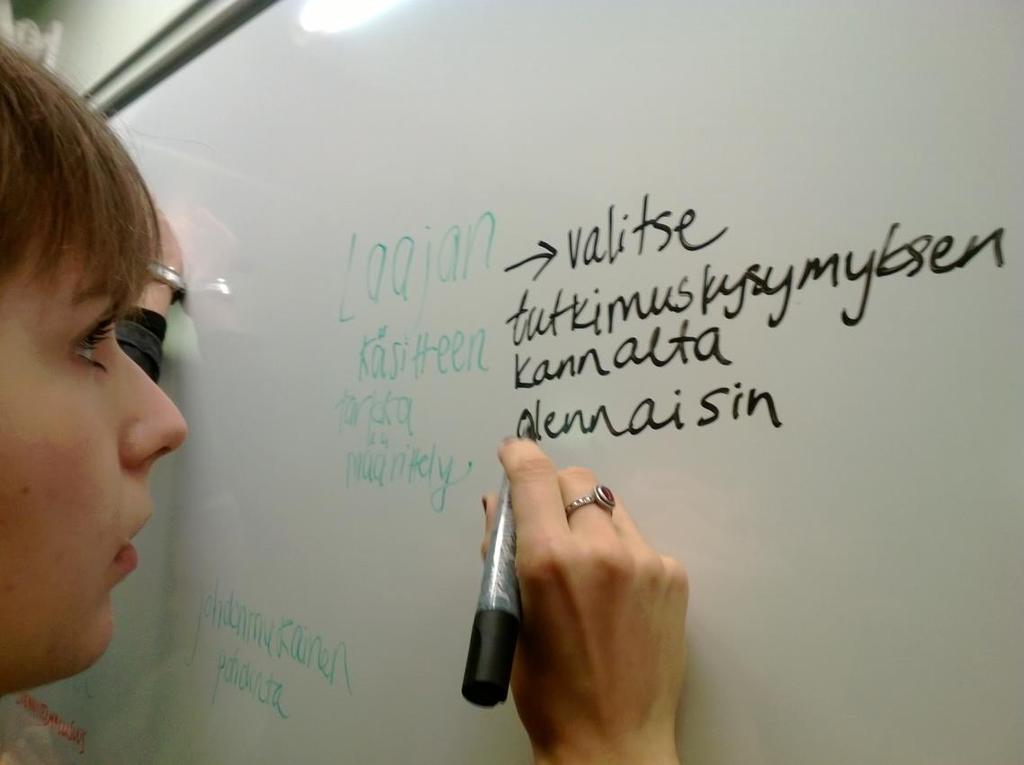 Laajan
käsitteen
tarkka
määrittely
→ valitse
tutkimuskysymyksen
kannalta
olennaisin
johdonmukainen